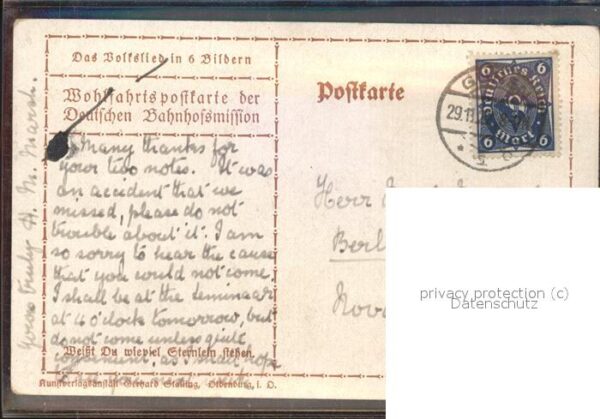 Das Volkslied in 6 Bildern
Wohlfahrtspostkarte der
Deutschen Bahnhofsmission
Postkarte
6 Deutsches Reich 6
6 Mark 6
29.11.
Many thanks for
your two notes. It was
an accident that we
missed, please do not
trouble about it. I am
so sorry to hear the cause
that you would not come.
I shall be at the seminar
at 4 o'clock tomorrow, but
do not come unless quite
convenient, as I shall hope
Yours truly H. M. Marsh.
Weißt Du wieviel Sternlein stehen.
Kunstverlagsanstalt Gerhard Stalling, Oldenburg, i. O.
Herr
Berl
Nova
privacy protection (c)
Datenschutz